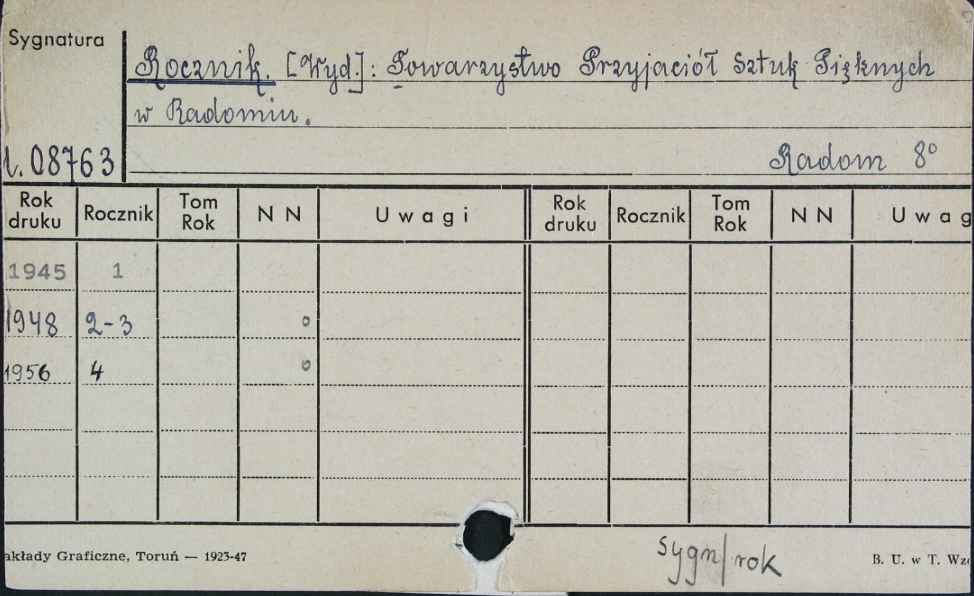 Sygnatura
Rocznik. [Wyd.]: Towarzystwo Przyjaciół Sztuk Pięknych
w Radomiu.
08763
Radom 8°
Rok druku Rocznik Tom Rok N N Uwagi Rok druku Rocznik Tom Rok N N Uwag
1945 1
1948 2-3 o
1956 4 o
akłady Graficzne, Toruń — 1923-47
sygn/rok
B. U. w T. Wz